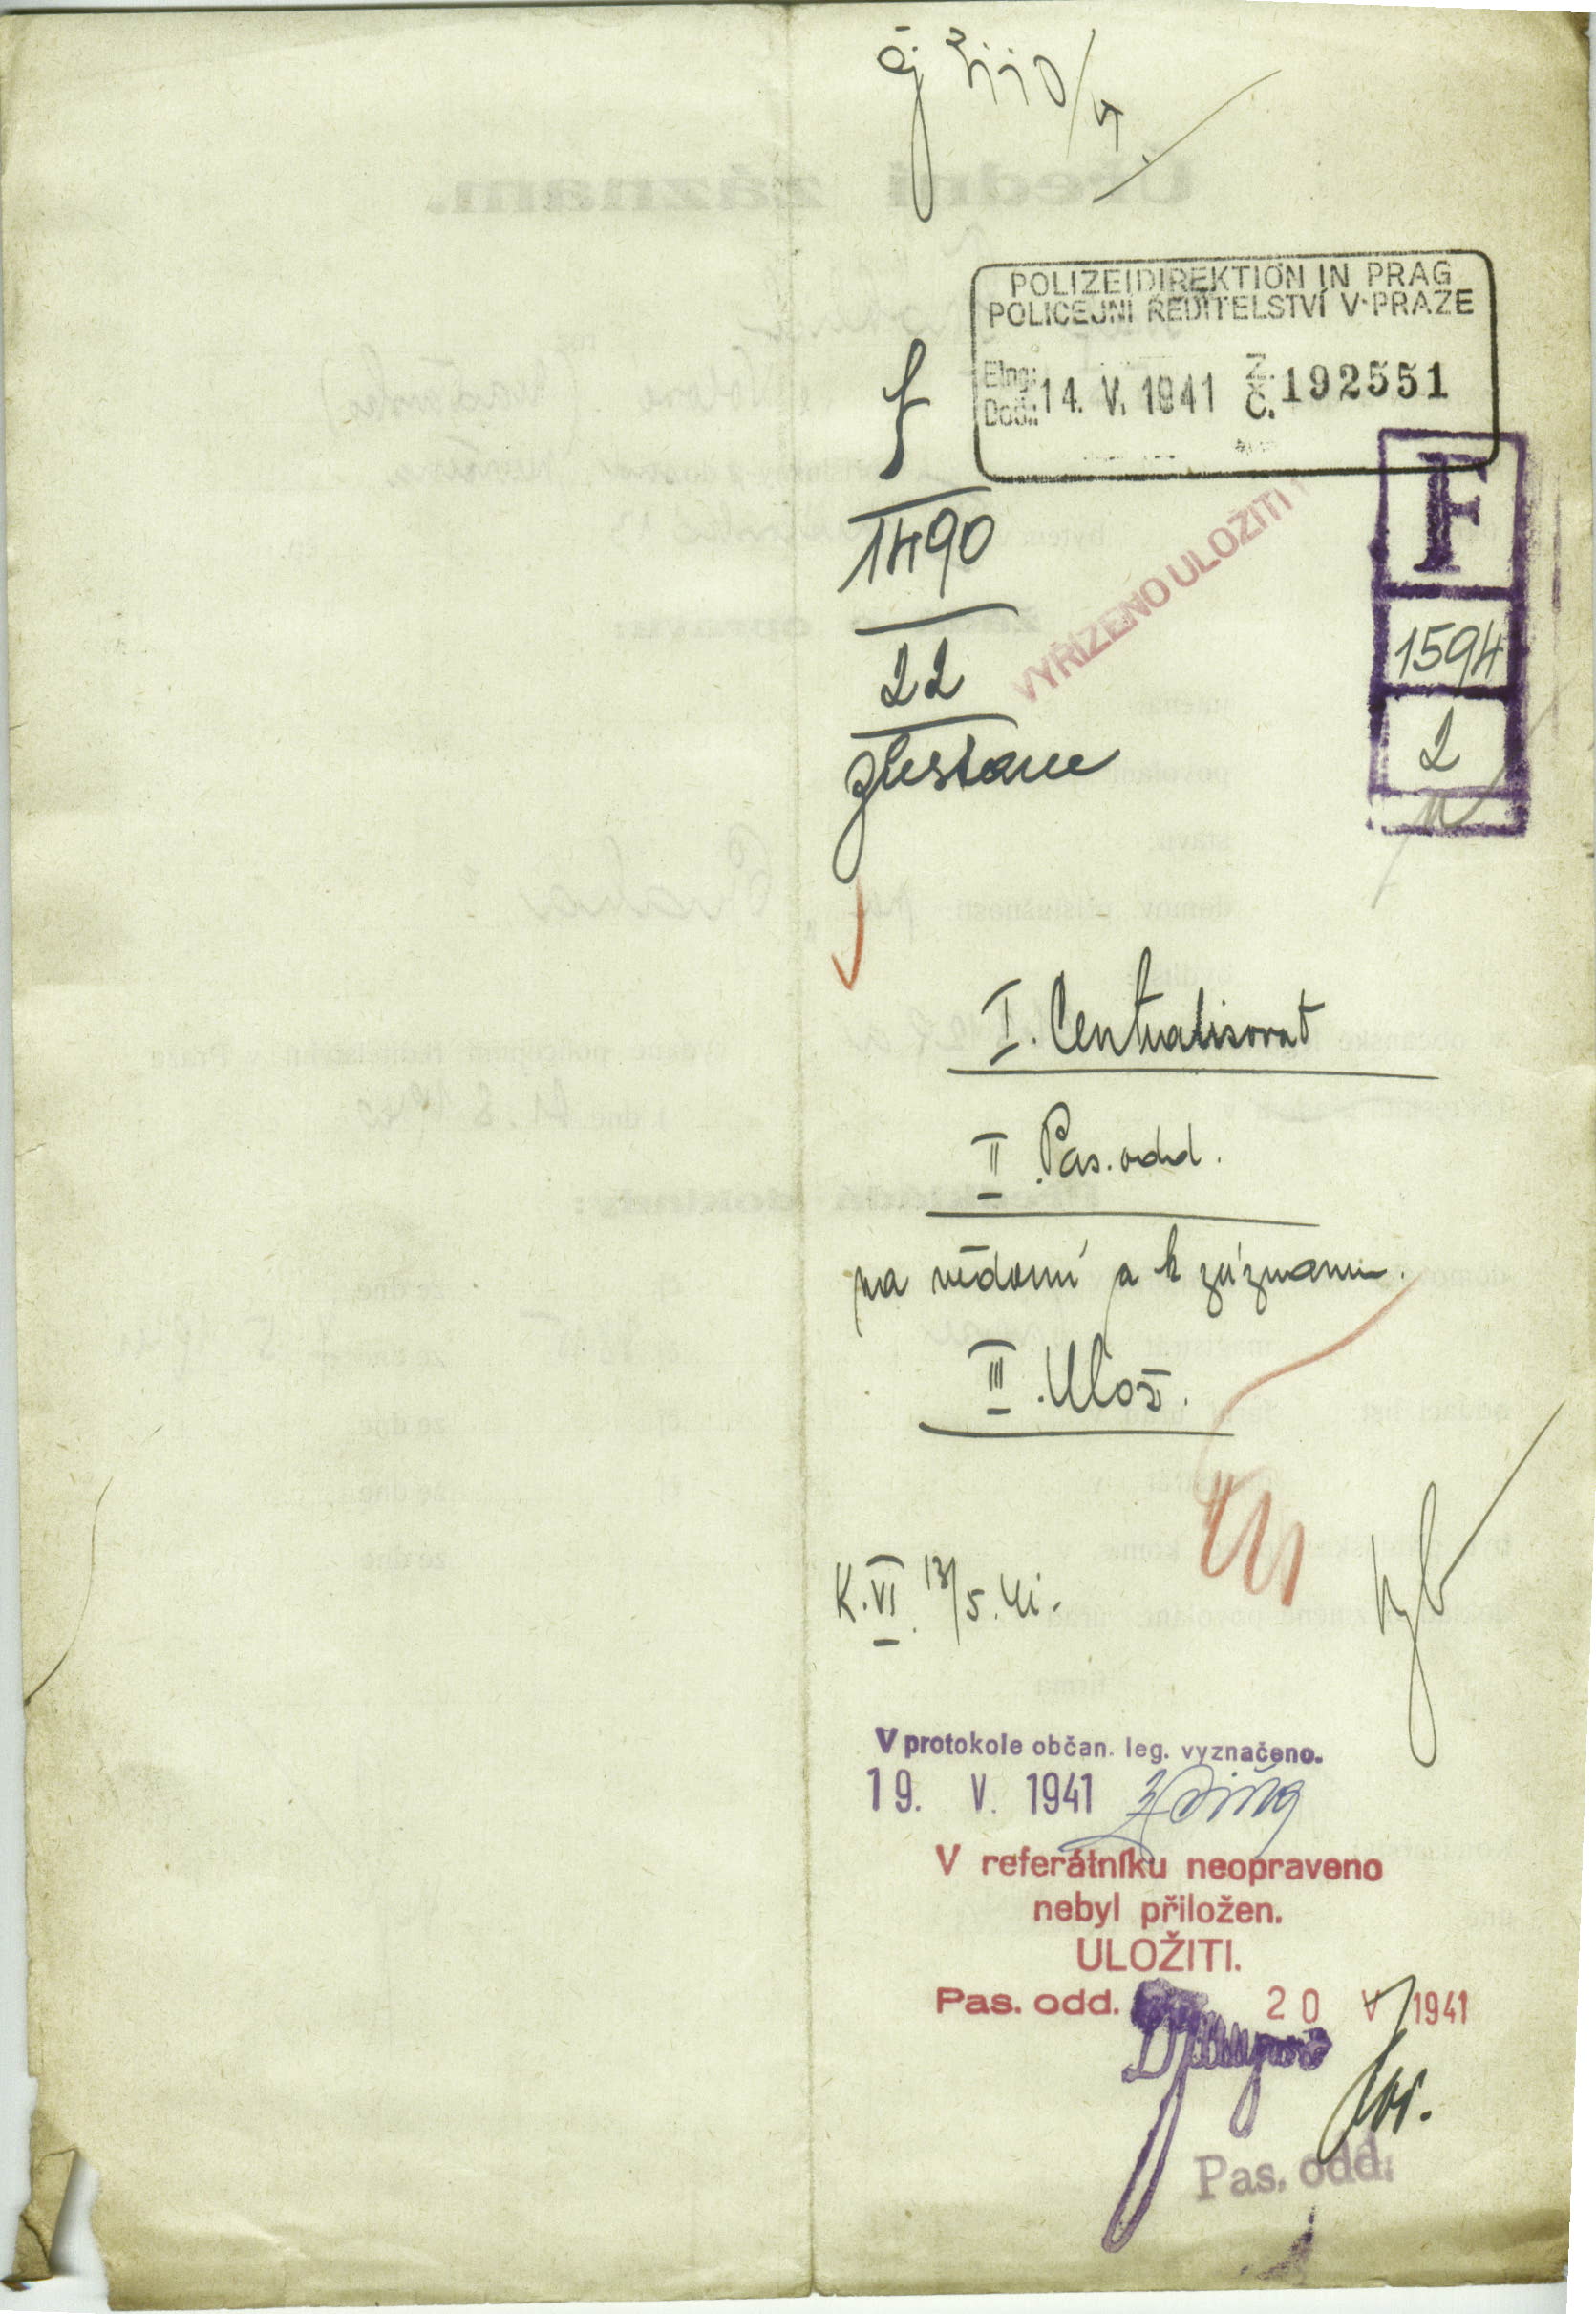 POLIZEIDIREKTION IN PRAG
POLICEJNÍ ŘEDITELSTVÍ V PRAZE
Eing.: Z.
Došl.: 14. V. 1941 Č. 192551
f
1490
22
zůstane
VYŘÍZENO ULOŽITI
F
1594
2
I. Centralisovat
II. Pas. odd.
na vědomí a k záznamu.
III. Ulož.
K. VI. 13/5. 41.
V protokole občan. leg. vyznačeno.
19. V. 1941
V referátníku neopraveno
nebyl přiložen.
ULOŽITI.
Pas. odd. 20 V 1941
Pas. odd.